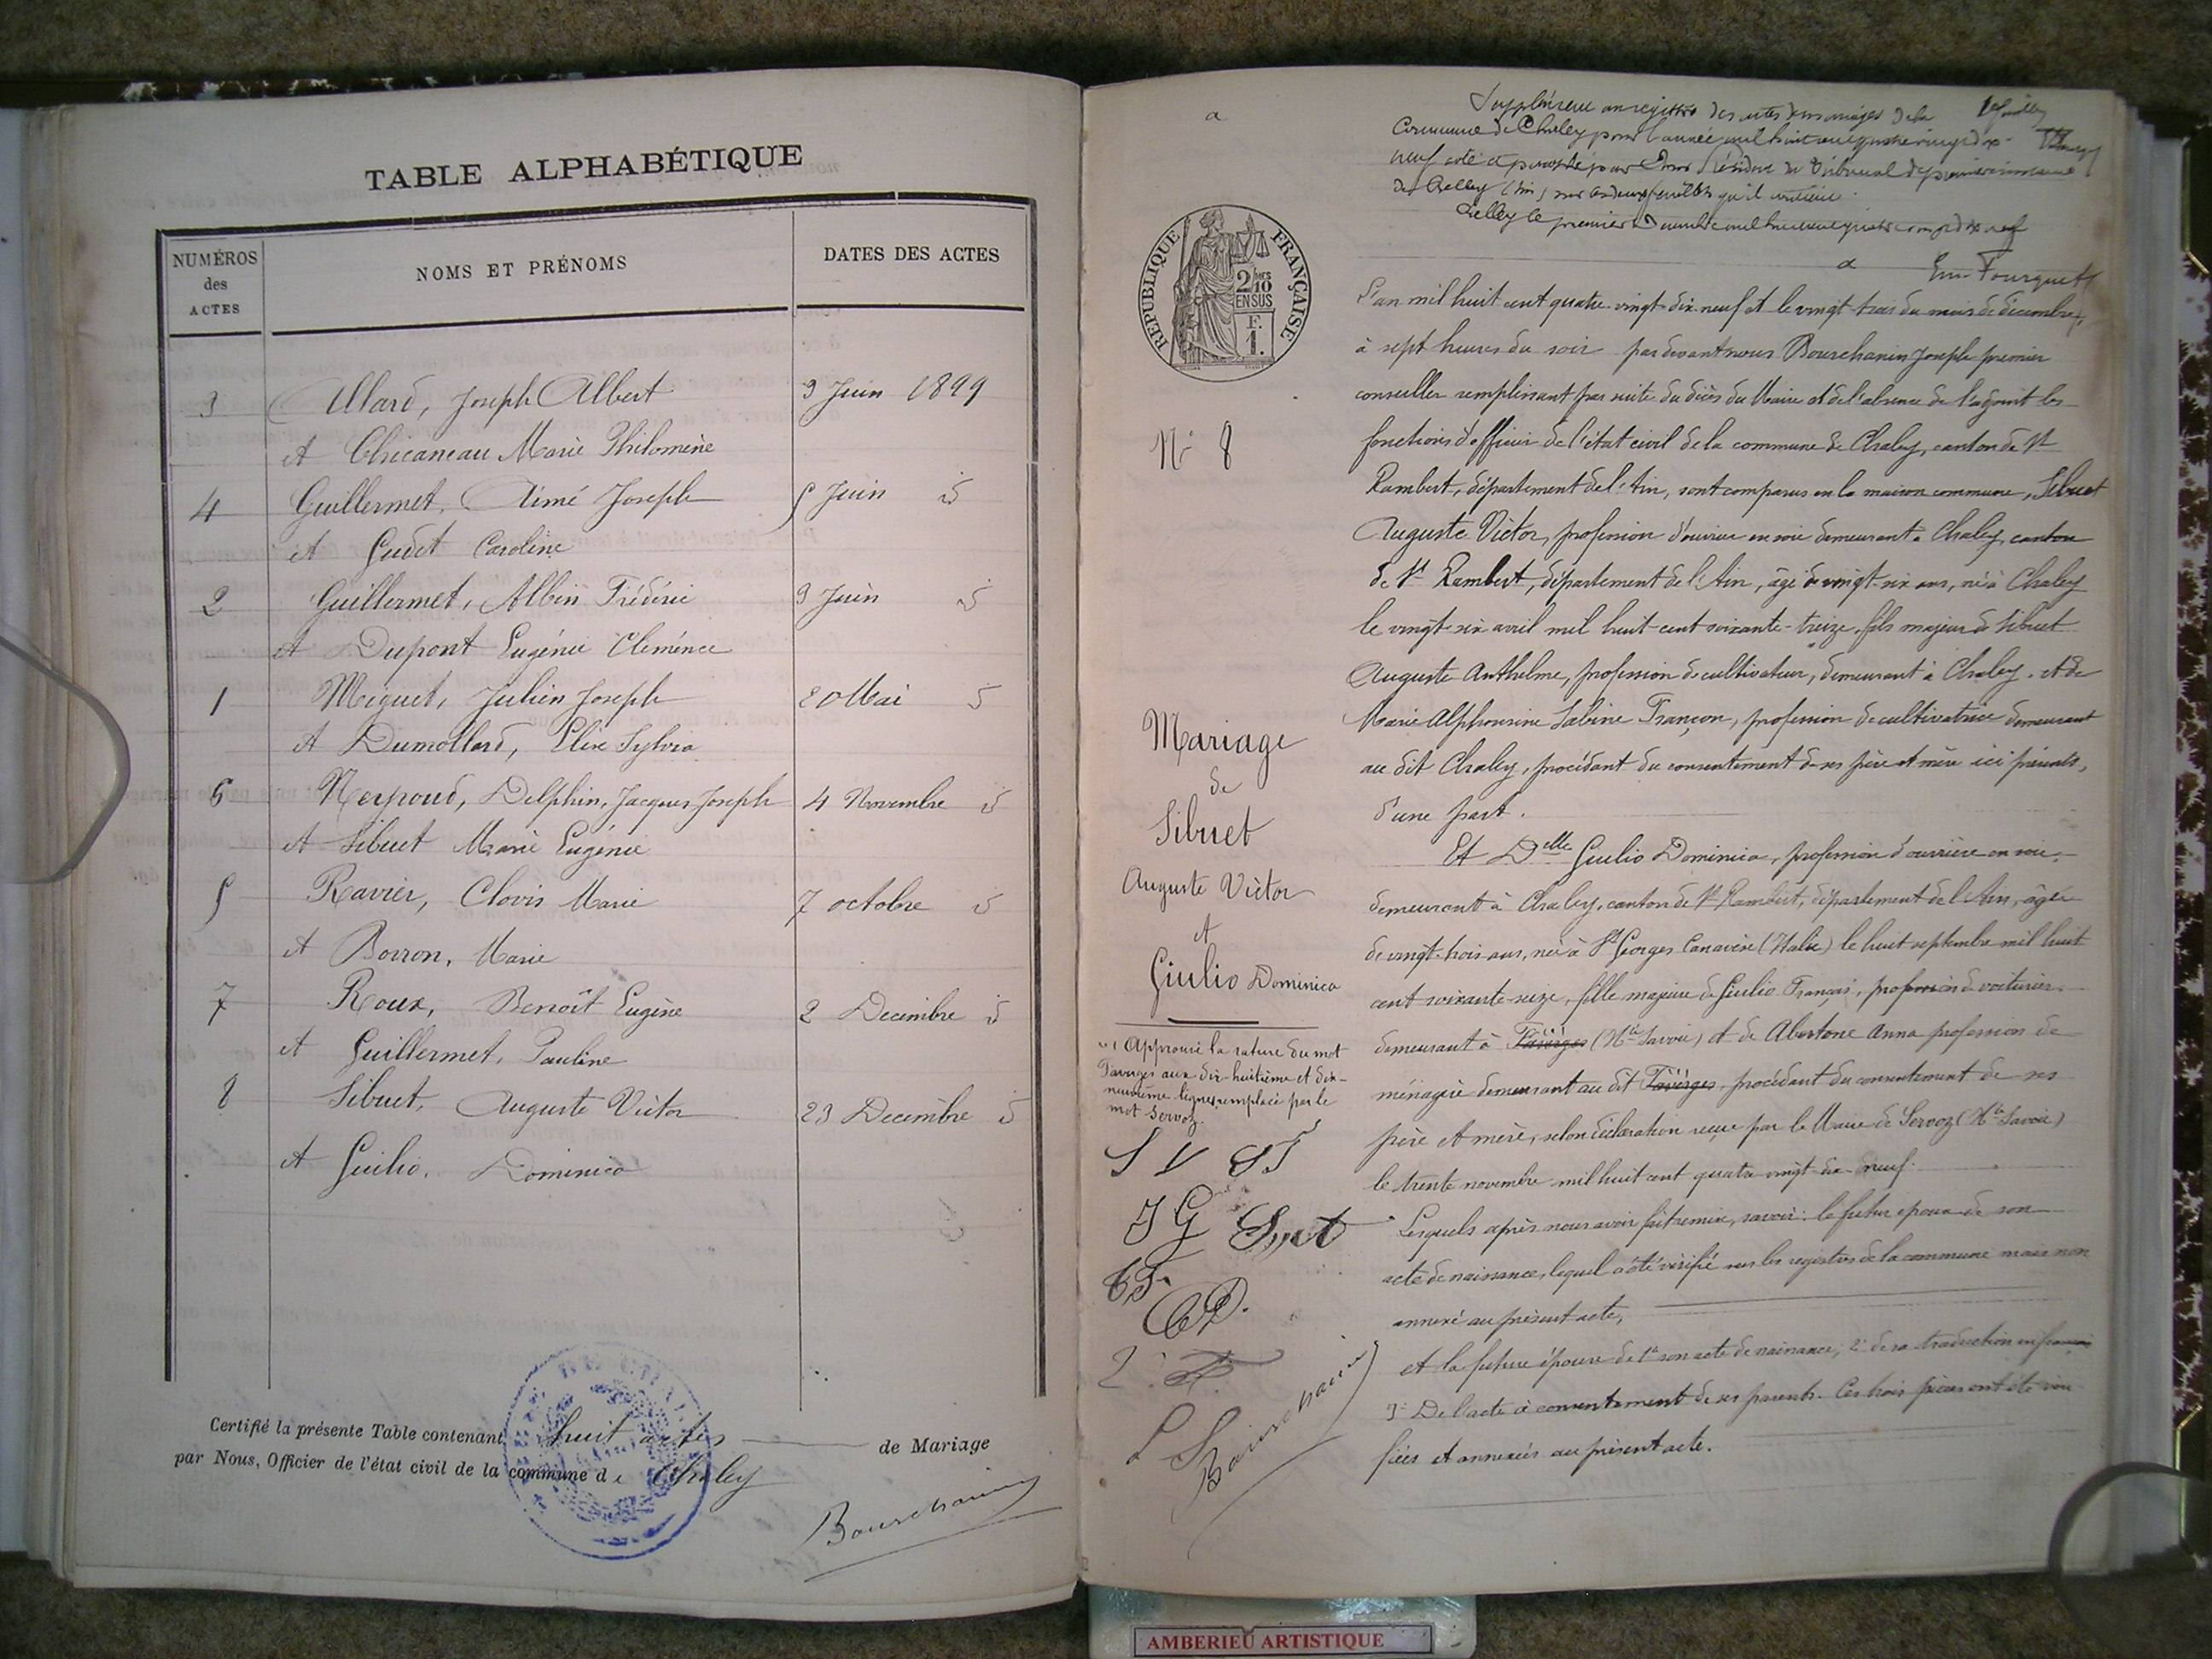 TABLE ALPHABÉTIQUE
NUMÉROS des ACTES
NOMS ET PRÉNOMS
DATES DES ACTES
3 Allard, Joseph Albert 3 Juin 1899
et Chicaneau Marie Philomène
4 Guillermet, Aimé Joseph 5 Juin id
et Gudet Caroline
2 Guillermet, Albin Frédéric 3 Juin id
et Dupont Eugénie Clémence
1 Miguet, Julien Joseph 20 Mai id
et Dumollard, Elise Sylvia
6 Neyroud, Delphin, Jacques Joseph 4 Novembre id
et Sibuet Marie Eugénie
5 Ravier, Clovis Marie 7 octobre id
et Borron, Marie
7 Roux, Benoît Eugène 2 Décembre id
et Guillermet, Pauline
8 Sibuet, Auguste Victor 23 Décembre id
et Guilio, Dominica
Certifié la présente Table contenant huit actes de Mariage
par Nous, Officier de l'état civil de la commune de Chaley
Bourchanin
Supplément au registre des actes de mariages de la
Commune de Chaley pour l'année mil huit cent quatre vingt dix
neuf coté et paraphé par nous Président du Tribunal de première instance
de Belley (Ain) sur les deux feuilles qu'il contient.
Belley le premier Décembre mil huit cent quatre vingt dix neuf
Em. Fourquet
RÉPUBLIQUE FRANÇAISE
2/10 EN SUS
F. 1.
L'an mil huit cent quatre-vingt-dix-neuf et le vingt-trois du mois de décembre,
à sept heures du soir par devant nous Bourchanin Joseph premier
conseiller remplissant par suite du décès du Maire et de l'absence de l'adjoint les
fonctions d'officier de l'état civil de la commune de Chaley, canton de St
Rambert, département de l'Ain, sont comparus en la maison commune, Sibuet
Auguste Victor, profession d'ouvrier en soie demeurant à Chaley, canton
de St Rambert, département de l'Ain, âgé de vingt-six ans, né à Chaley
le vingt-six avril mil huit-cent soixante-treize, fils majeur de Sibuet
Auguste Anthelme, profession de cultivateur, demeurant à Chaley, et de
Marie Alphonsine Sabine Françon, profession de cultivatrice demeurant
au dit Chaley, procédant du consentement de ses père et mère ici présents,
d'une part.
Et Delle Giulio Dominica, profession d'ouvrière en soie,
demeurant à Chaley, canton de St Rambert, département de l'Ain, âgée
de vingt-trois ans, née à St Georges Canavèse (Italie) le huit septembre mil huit
cent soixante-seize, fille majeure de Giulio Français, profession de voiturier
demeurant à Faverges (Hte Savoie) et de Abertone Anna profession de
ménagère demeurant au dit Faverges, procédant du consentement de ses
père et mère, selon déclaration reçue par le Maire de Servoz (Hte Savoie)
le trente novembre mil huit cent quatre vingt-dix-neuf.
Lesquels après nous avoir fait remise, savoir: le futur époux de son
acte de naissance, lequel a été vérifié sur les registres de la commune mais non
annexé au présent acte,
et la future épouse de 1° son acte de naissance, 2° de sa traduction en français
3° De l'acte de consentement de ses parents. Ces trois pièces ont été véri
fiées et annexées au présent acte.
N° 8
Mariage
de
Sibuet
Auguste Victor
et
Giulio Dominica
Approuvé la rature du mot
Faverges aux dix-huitième et dix-
neuvième lignes, remplacé par le
mot Servoz.
S V
J G
Bourchanin
AMBERIEU ARTISTIQUE